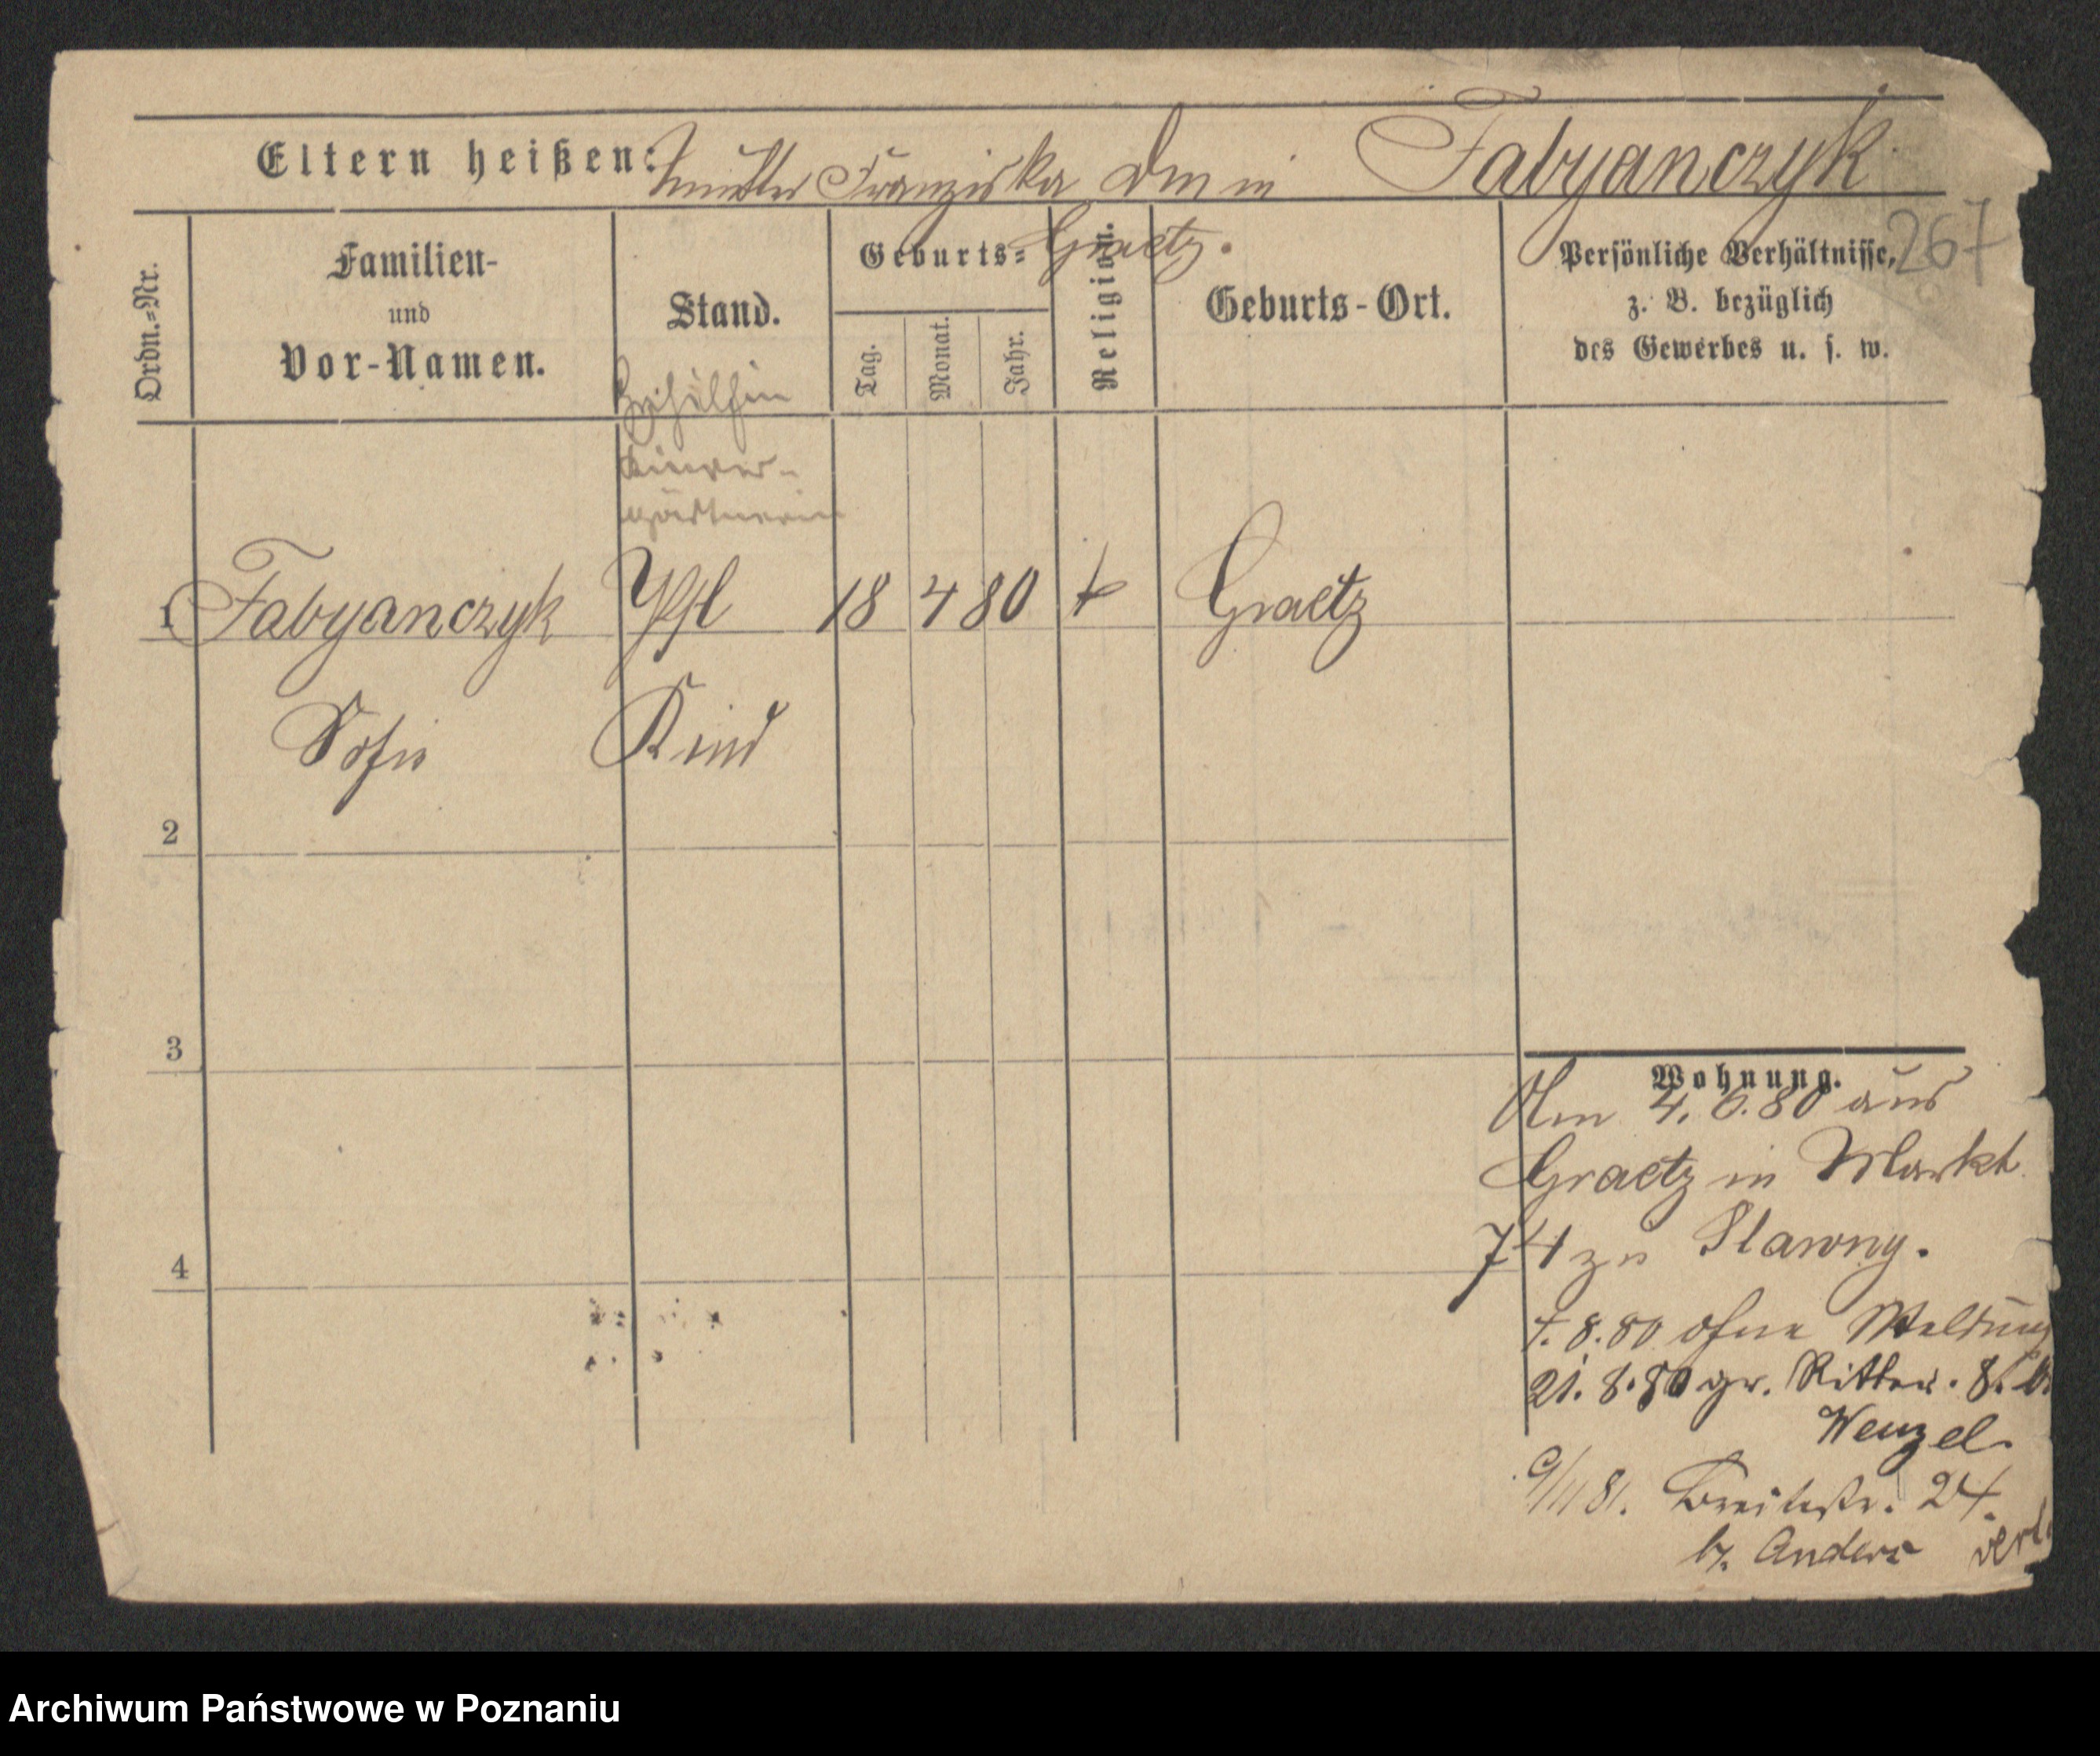 Eltern heißen: Mutter Franziska Dm in Fabyanczyk
Graetz.
267
Ordn.-Nr.
Familien-
und
Vor-Namen.
Stand.
Geburts-
Tag.
Monat.
Jahr.
Religion.
Geburts-Ort.
Persönliche Verhältnisse,
z. B. bezüglich
des Gewerbes u. s. w.
Gehülfin
Kinder-
gärtnerin
1 Fabyanczyk Pfl 18 4 80 Graetz
Sofie Kind
2
3
4
Wohnung.
Am 4. 6. 80 aus
Graetz in Markt
74 zu Slawny.
8.80 ohne Meldung
21. 8. 80 gr. Ritter. 8.
Wenzel.
9/11 81. Breitestr. 24.
b. Anders
Archiwum Państwowe w Poznaniu